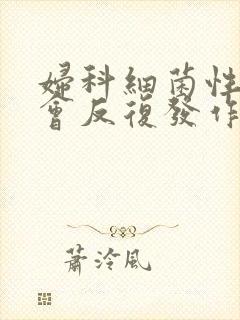 婦科細菌性
會反復發作
蕭泠風